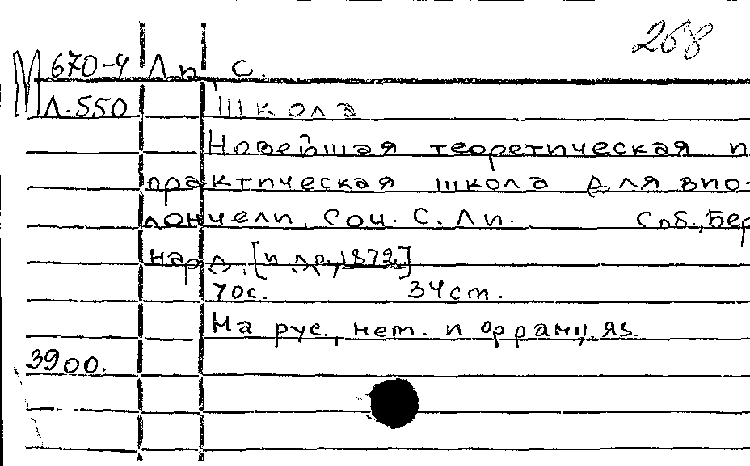 268
М 670-4 Ли С.
Л-550 Школа
Новейшая теоретическая и
практическая школа для вио-
лончели. Соч. С. Ли. Спб., Бер
нард, [и др., 1872]
70с. 34ст.
На рус., нем. и франц. яз.
3900.